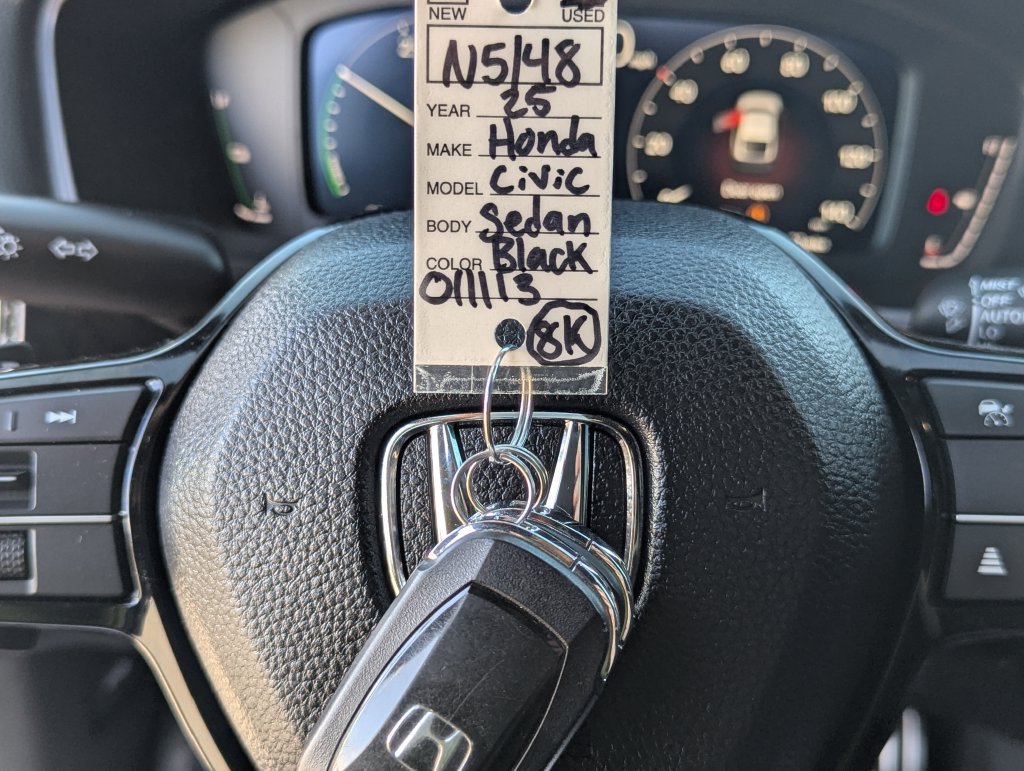 NEW USED
N5148
YEAR 25
MAKE Honda
MODEL Civic
BODY Sedan
COLOR Black
011113
8K
MIST
OFF
AUTO
LO